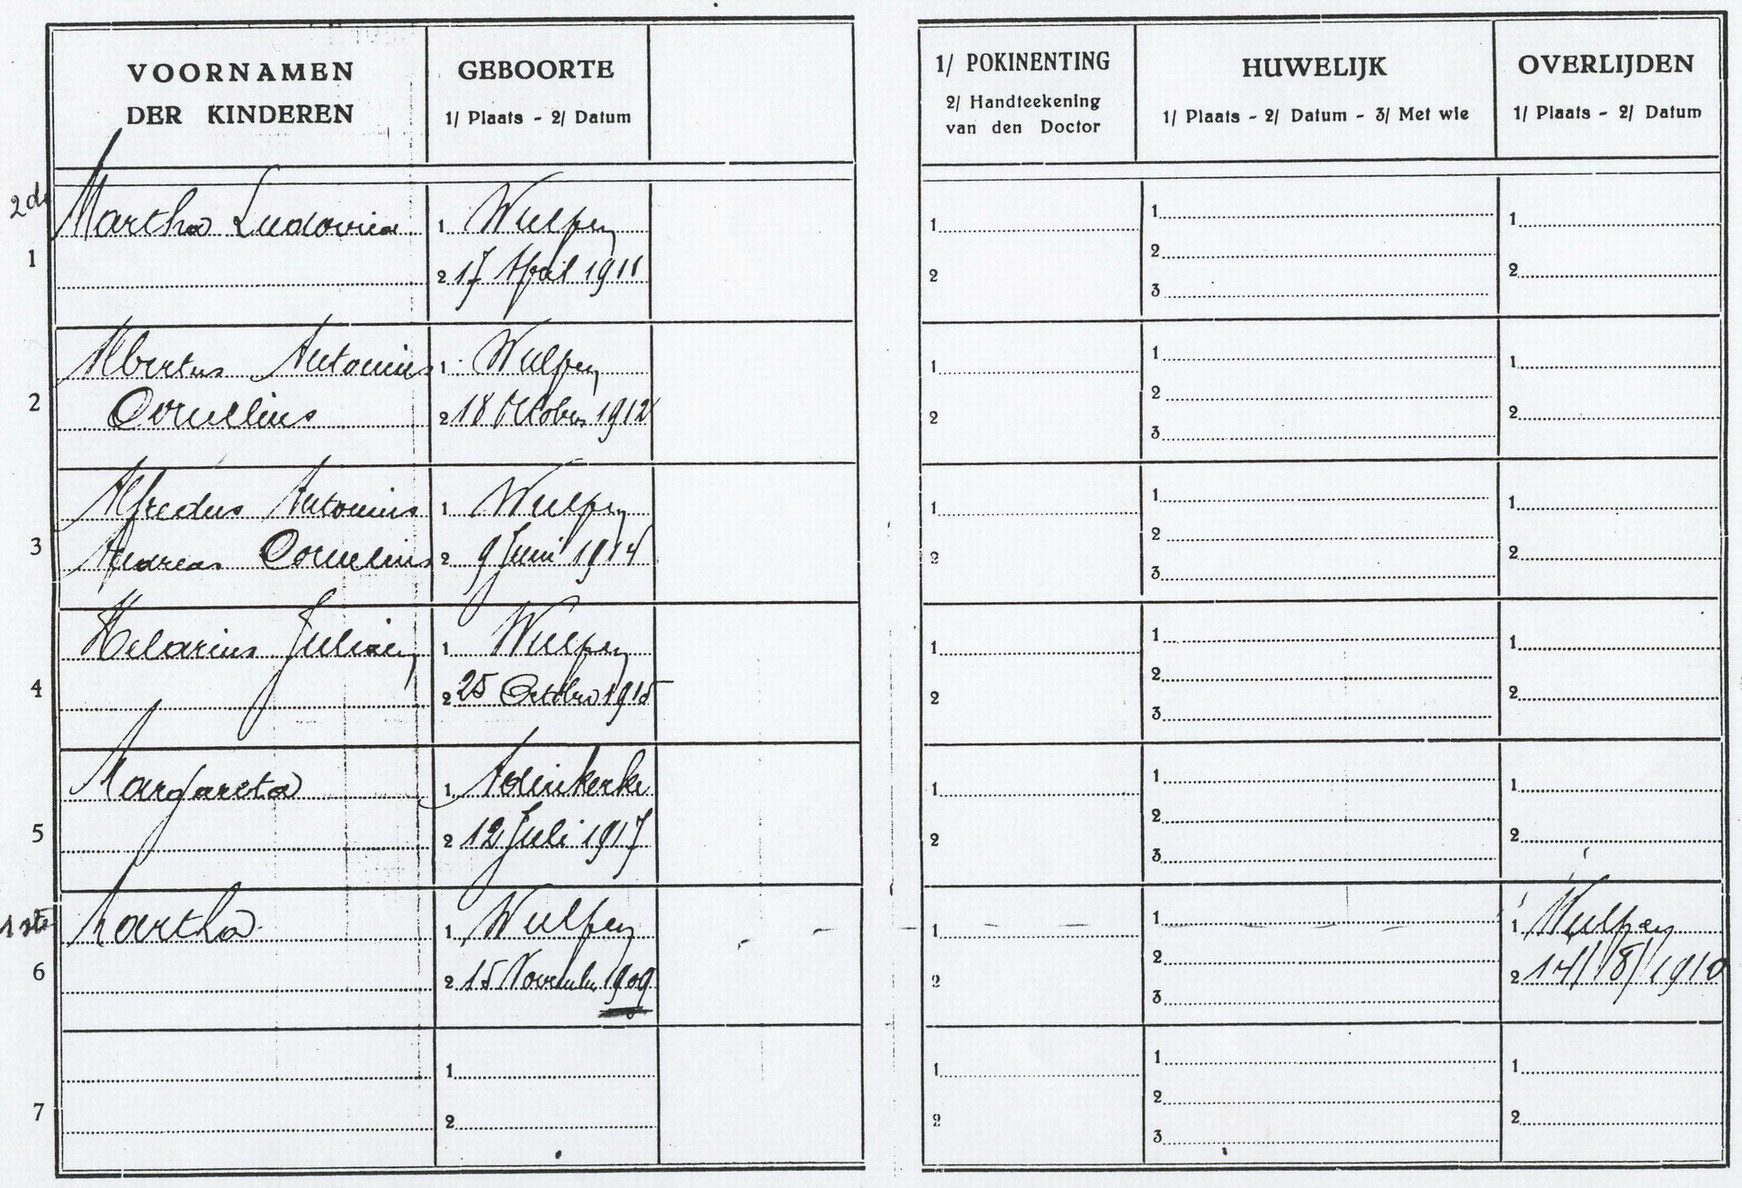 VOORNAMEN
DER KINDEREN
GEBOORTE
1/ Plaats - 2/ Datum
1/ POKINENTING
2/ Handteekening
van den Doctor
HUWELIJK
1/ Plaats - 2/ Datum - 3/ Met wie
OVERLIJDEN
1/ Plaats - 2/ Datum
2de
1
Martha Ludovica
1 Wulpen
2 17 April 1911
1
2
1
2
3
1
2
2
Albertus Antonius
Cornelius
1 Wulpen
2 18 October 1912
1
2
1
2
3
1
2
3
Alfredus Antonius
Andreas Cornelius
1 Wulpen
2 9 Juni 1914
1
2
1
2
3
1
2
4
Helarius Julien
1 Wulpen
2 25 October 1915
1
2
1
2
3
1
2
5
Margareta
1 Adinkerke
2 12 Juli 1917
1
2
1
2
3
1
2
1ste
6
Martha
1 Wulpen
2 15 November 1909
1
2
1
2
3
1 Wulpen
2 14/8/1910
7
1
2
1
2
1
2
3
1
2